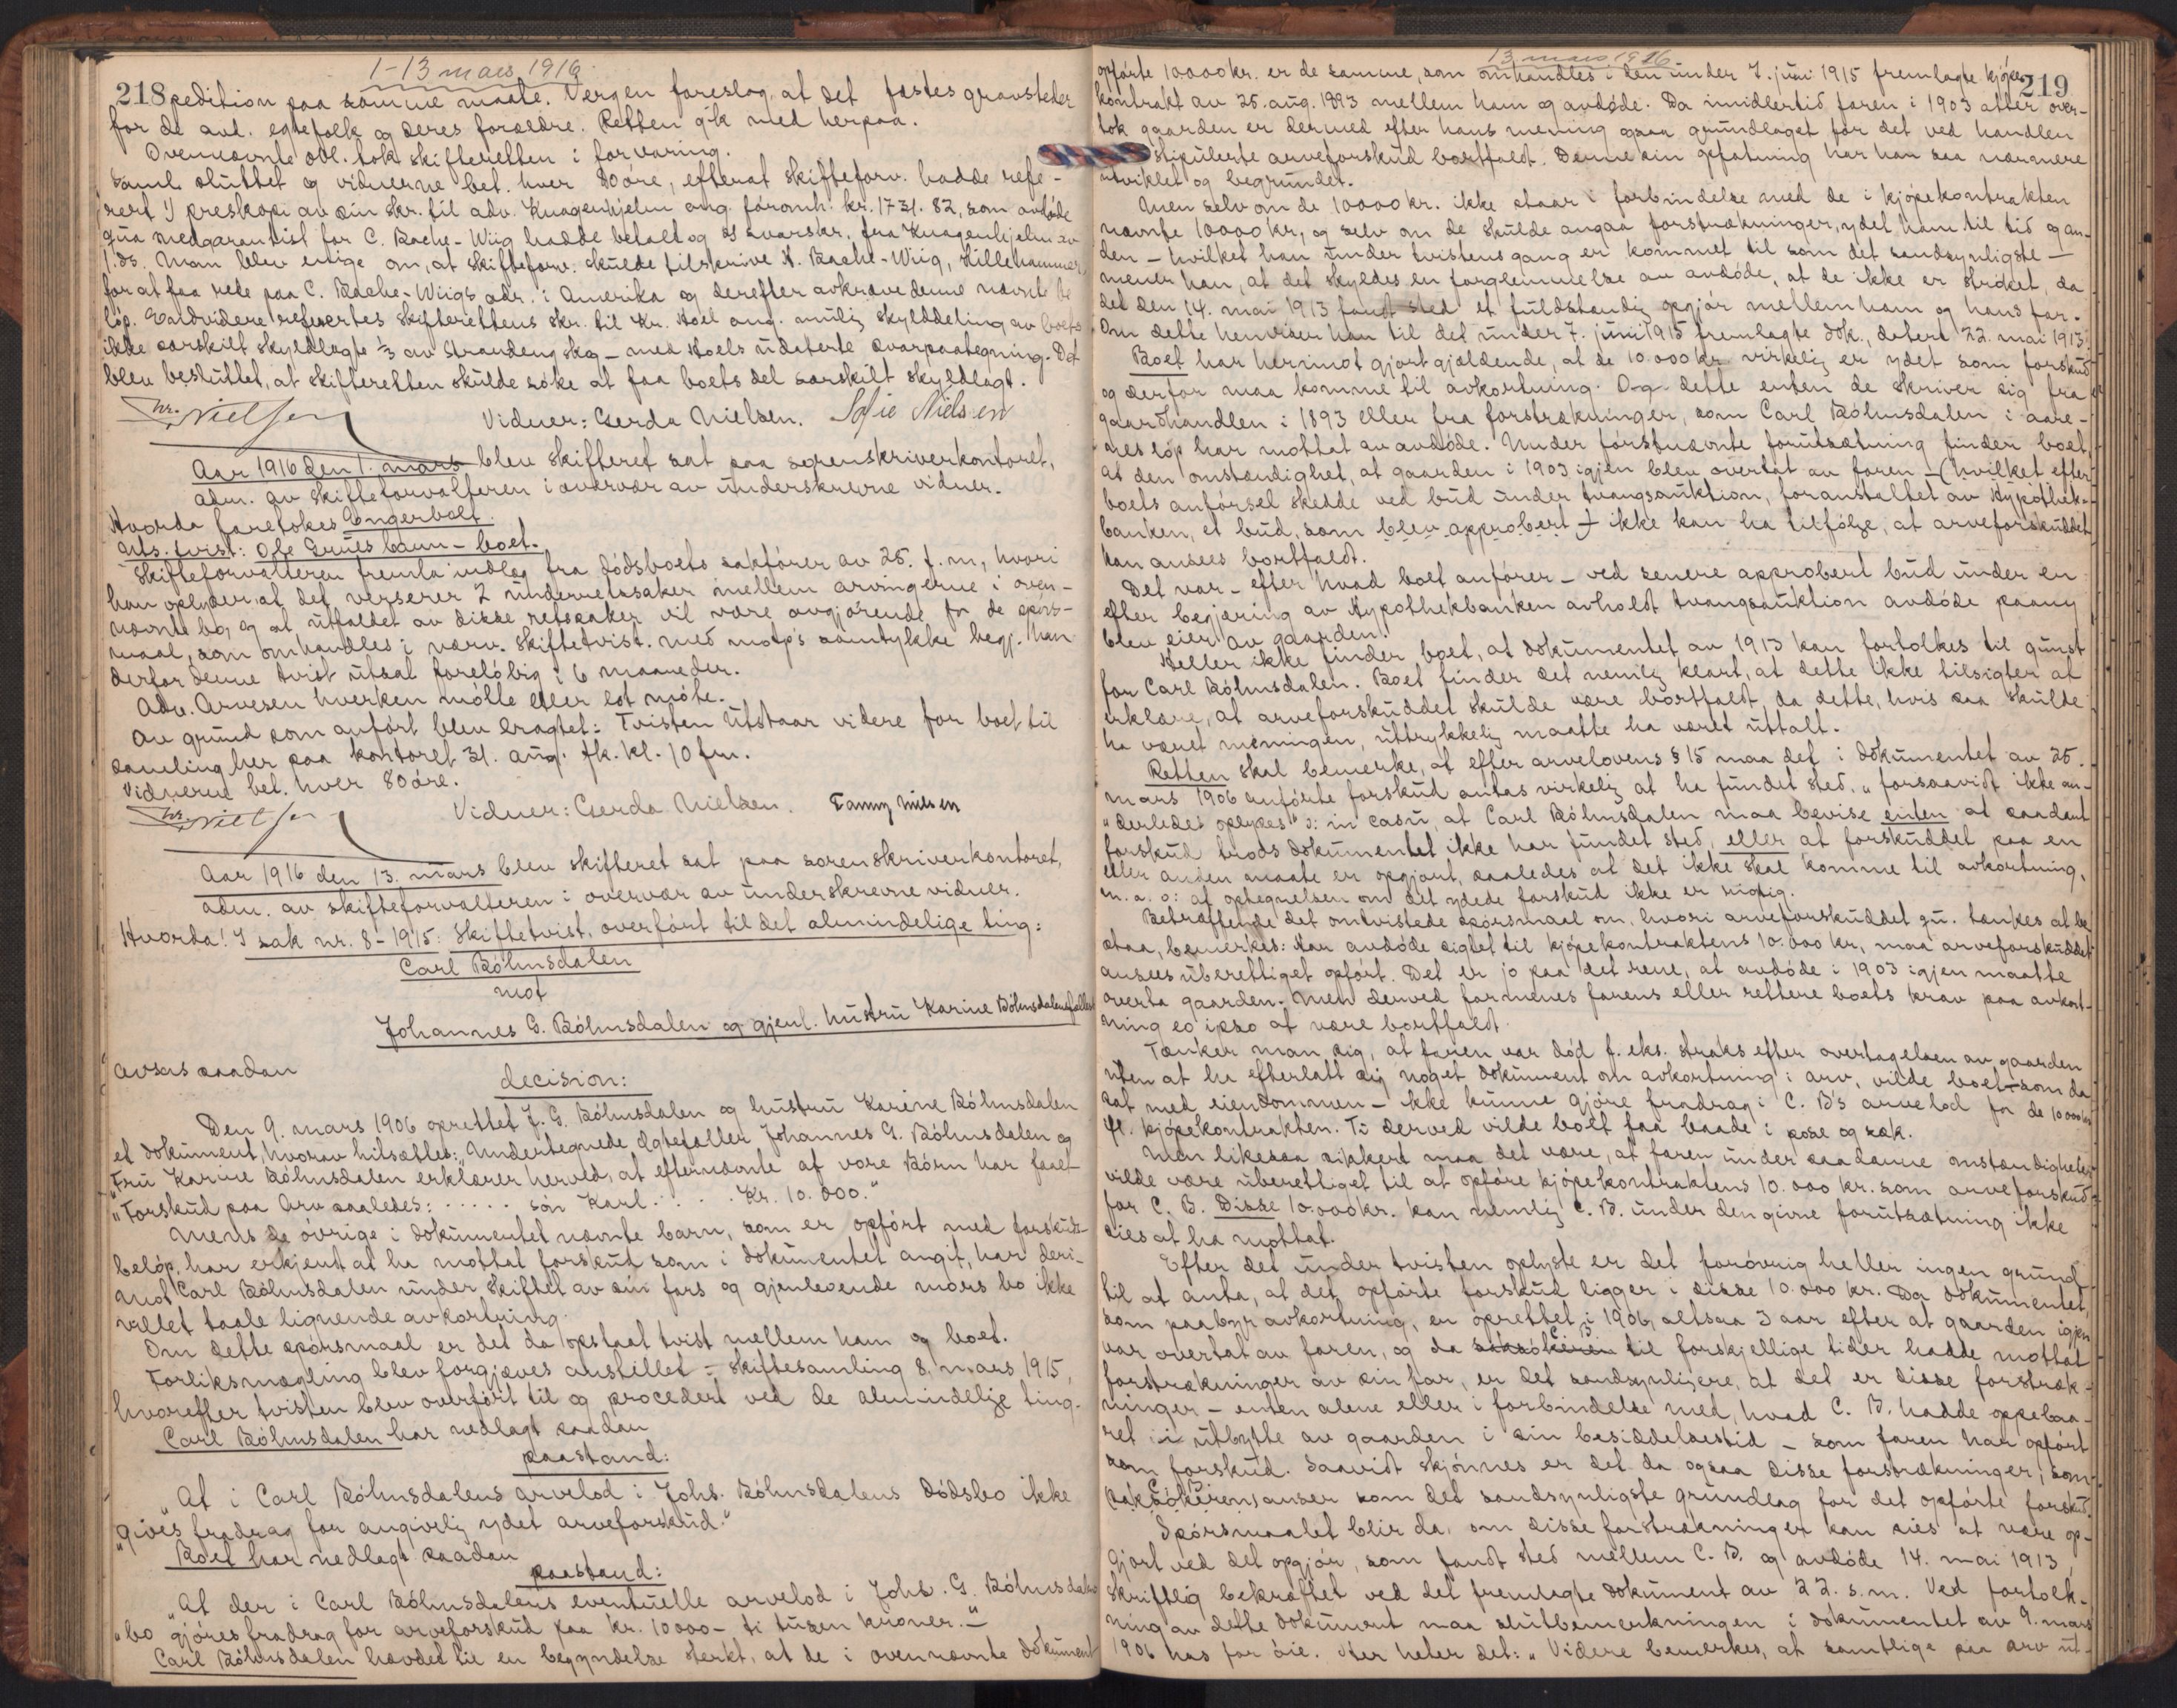 1-13 mars 1916.
218 pedition paa samme maate. Vergen foreslog, at det fæstes gravsteder
for de avd. egtefolk og deres forældre. Retten gik med herpaa.
Ovennævnte obl. tok skifteretten i forvaring.
Saml. sluttet og vidnerne bet. hver 80 øre, efterat skifteforv. hadde refe-
rert 1) preskopi av sin skr. til adv. Knagenhjelm ang. førømh. kr. 1731.82, som avdøde
qua medgarantist for C. Bache-Wiig hadde betalt og 2) svarskr. fra Knagenhjelm av
1. ds. Man blev enige om, at skifteforv. skulde tilskrive N. Bache-Wiig, Lillehammer,
for at faa rede paa C. Bache-Wiigs adr. i Amerika og derefter avkræve denne nævnte be
løp. Endvidere refertes skifterettens skr. til Kr. Hoel ang. mulig skylddeling av boets
ikke særskilt skyldlagte 1/3 av Strandeng skog - med Hoels udaterte svarpaategning. Det
blev besluttet, at skifteretten skulde søke at faa boets del særskilt skyldlagt.
Nielsen Vidner: Gerda Nielsen. Sofie Nielsen
Aar 1916 den 1. mars blev skifteret sat paa sorenskriverkontoret,
adm. av skifteforvalteren i overvær av underskrevne vidner.
Hvorda foretokes Engerbolt.
Uts. tvist: Ole Gruesbaun-boet.
Skifteforvalteren fremla indlæg fra dødsboets sakfører av 25. f. m., hvori
han oplyder, at det verserer 2 underretssaker mellem arvingerne i oven-
nævnte bo, og at utfaldet av disse retssaker vil være avgjørende for de spørs-
maal, som omhandles i nærv. skiftetvist. Med motp's samtykke begj. han
derfor denne tvist utsat foreløbig i 6 maaneder.
Adv. Arnesen hverken møtte eller lot møte.
Av grund som anført blev eragtet: Tvisten utstaar videre for boet til
samling her paa kontoret 31. aug. fk. kl. 10 fm.
Vidnerne bet. hver 80 øre.
Nielsen Vidner: Gerda Nielsen. Fanny Nielsen
Aar 1916 den 13. mars blev skifteret sat paa sorenskriverkontoret,
adm. av skifteforvalteren i overvær av underskrevne vidner.
Hvorda: I sak nr. 8-1915: Skiftetvist, overført til det almindelige ting:
Carl Böhnsdalen
mot
Johannes G. Böhnsdalen og gjenl. hustru Karine Böhnsdalens fællesbo
avsas saadan
decision:
Den 9. mars 1906 oprettet J. G. Böhnsdalen og hustru Karine Böhnsdalen
et dokument, hvorav hitsættes: "Undertegnede Ægtefæller Johannes G. Böhnsdalen og
"Fru Karine Böhnsdalen erklærer herved, at efternævnte af vore Børn har faaet
"Forskud paa Arv saaledes: . . . . . søn Karl . . . . Kr. 10.000."
Mens de øvrige i dokumentet nævnte barn, som er opført med forskuds-
beløp, har erkjendt at ha mottat forskud som i dokumentet angit, har deri-
mot Carl Böhnsdalen under skiftet av sin fars og gjenlevende mors bo ikke
villet taale lignende avkortning.
Om dette spørsmaal er det da opstaat tvist mellem ham og boet.
Forliksmægling blev forgjæves anstillet i skiftesamling 8. mars 1915,
hvorefter tvisten blev overført til og procedert ved de almindelige ting.
Carl Böhnsdalen har nedlagt saadan
paastand:
"At i Carl Böhnsdalens arvelod i Johs. Böhnsdalens dødsbo ikke
"gives fradrag for angivelig ydet arveforskud."
Boet har nedlagt saadan
paastand:
"At der i Carl Böhnsdalens eventuelle arvelod i Johs. G. Böhnsdalens
"bo gjøres fradrag for arveforskud paa kr. 10000- ti tusen kroner."-
Carl Böhnsdalen hævdet til en begyndelse sterkt, at de i ovennævnte dokument
13 mars 1916.
219
opførte 10000 kr. er de samme, som omhandles i den under 7. juni 1915 fremlagte kjøpe-
kontrakt av 25. aug. 1893 mellem ham og avdøde. Da imidlertid faren i 1903 atter over-
tok gaarden er dermed efter hans mening ogsaa grundlaget for det ved handlen
stipulerte arveforskud bortfaldt. Denne sin opfatning har han saa nærmere
utviklet og begrundet.
Men selv om de 10000 kr. ikke staar i forbindelse med de i kjøpekontrakten
nævnte 10000 kr, og selv om de skulde angaa forstrækninger, ydet ham til tid og an-
den - hvilket han under tvistens gang er kommet til som det sandsynligste -
mener han, at det skyldes en forglemmelse av avdøde, at de ikke er strøket, da
det den 14. mai 1913 fandt sted et fuldstændig opgjør mellem ham og hans far.
Om dette henviser han til det under 7. juni 1915 fremlagte dok., datert 22. mai 1913.
Boet har herimot gjort gjældende, at de 10.000 kr. virkelig er ydet som forskud
og derfor maa komme til avkortning. Og dette enten de skriver sig fra
gaardhandlen i 1893 eller fra forstrækninger, som Carl Böhnsdalen i aare-
nes løp har mottat av avdøde. Under førstnævnte forutsætning finder boet,
at den omstændighet, at gaarden i 1903 igjen blev overtat av faren - (hvilket efter
boets anførsel skedde ved bud under tvangsauktion, foranstaltet av Hypothek-
banken, et bud, som blev approbert) - ikke kan ha tilfølge, at arveforskuddet
kan ansees bortfaldt.
Det var - efter hvad boet anfører - ved senere approbert bud under en
efter begjæring av Hypothekbanken avholdt tvangsauktion avdøde paany
blev eier av gaarden.
Heller ikke finder boet, at dokumentet av 1913 kan fortolkes til gunst
for Carl Böhnsdalen. Boet finder det nemlig klart, at dette ikke tilsigter at
erklære, at arveforskuddet skulde være bortfaldt, da dette, hvis saa skulde
ha været meningen, uttrykkelig maatte ha været uttalt.
Retten skal bemerke, at efter arvelovens § 15 maa det i dokumentet av 25.
mars 1906 anførte forskud antas virkelig at ha fundet sted, "forsaavidt ikke an-
"derledes oplyses" ɔ: in casu, at Carl Böhnsdalen maa bevise enten at saadant
forskud trods dokumentet ikke har fundet sted, eller at forskuddet paa en
eller anden maate er opgjort, saaledes at det ikke skal komme til avkortning,
m. a. o: at optegnelsen om det ydede forskud ikke er rigtig.
Betræffende det omtvistede spørsmaal om, hvori arveforskuddet gu. tænkes at be
staa, bemerkes: Har avdøde sigtet til kjøpekontraktens 10.000 kr, maa arveforskuddet
ansees uberettiget opført. Det er jo paa det rene, at avdøde i 1903 igjen maatte
overta gaarden. Men derved formenes farens eller rettere boets krav paa avkort-
ning eo ipso at være bortfaldt.
Tænker man sig, at faren var død f. eks. straks efter overtagelsen av gaarden
uten at ha efterlatt sig noget dokument om avkortning i arv, vilde boet - som da
sat med eiendommen - ikke kunne gjøre fradrag i C. B's arvelod for de 10000 kr
ifl. kjøpekontrakten. Ti derved vilde boet faa baade i pose og sæk.
Men likesaa sikkert maa det være, at faren under saadanne omstændigheter
vilde være uberettiget til at opføre kjøpekontraktens 10.000 kr. som arveforskud
for C. B. Disse 10.000 kr. kan nemlig C. B. under den givne forutsætning ikke
sies at ha mottat.
Efter det under tvisten oplyste er det forøvrig heller ingen grund
til at anta, at det opførte forskud ligger i disse 10.000 kr. Da dokumentet,
som paabyr avkortning, er oprettet i 1906, altsaa 3 aar efter at gaarden igjen
var overtat av faren, og da saksøkeren C. B. til forskjellige tider hadde mottat
forstrækninger av sin far, er det sandsynligere, at det er disse forstræk-
ninger - enten alene eller i forbindelse med, hvad C. B. hadde oppebaa-
ret i utbytte av gaarden i sin besiddelsestid - som faren har opført
som forskud. Saavidt skjønnes er det da ogsaa disse forstrækninger, som
C. B. (saksøkeren) anser som det sandsynligste grundlag for det opførte forskud.
Spørsmaalet blir da, om disse forstrækninger kan sies at være op-
gjort ved det opgjør, som fandt sted mellem C. B. og avdøde 14. mai 1913,
skriftlig bekræftet ved det fremlagte dokument av 22. s. m. Ved fortolk-
ning av dette dokument maa slutbemerkningen i dokumentet av 9. mars
1906 has for øie. Her heter det: "Videre bemerkes, at samtlige paa arv ut-